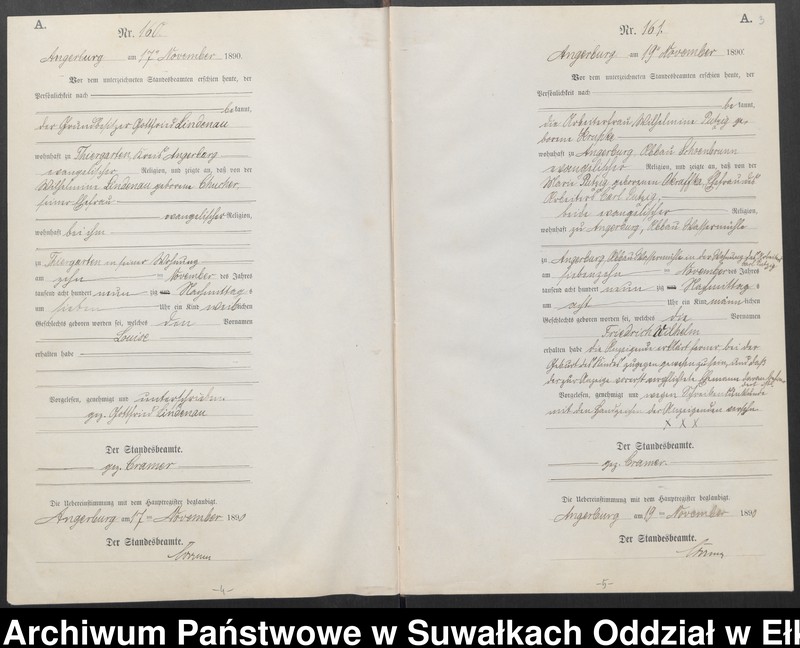 A.
Nr. 160.
Angerburg am 17ten November 1890.
Vor dem unterzeichneten Standesbeamten erschien heute, der
Persönlichkeit nach
be kannt,
der Grundbesitzer Gottfried Lindenau
wohnhaft zu Thiergarten, Kreis Angerburg
evangelischer Religion, und zeigte an, daß von der
Wilhelmine Lindenau geborene
seiner Ehefrau
evangelischer Religion,
wohnhaft bei ihm
zu Tiergarten in seiner Wohnung
am zehn ten November des Jahres
tausend acht hundert neun zig Nachmittags
um sieben Uhr ein Kind weiblichen
Geschlechts geboren worden sei, welches den Vornamen
Louise
erhalten habe
Vorgelesen, genehmigt und unterschrieben
gez. Gottfried Lindenau
Der Standesbeamte.
gez. Cramer
Die Uebereinstimmung mit dem Hauptregister beglaubigt.
Angerburg am 17ten November 1890
Der Standesbeamte.
-4-
A. 3
Nr. 161.
Angerburg am 19ten November 1890.
Vor dem unterzeichneten Standesbeamten erschien heute, der
Persönlichkeit nach
be kannt,
die Arbeiterfrau Wilhelmine Putzig ge-
borene
wohnhaft zu Angerburg, Abbau Schoenbrunn
evangelischer Religion, und zeigte an, daß von der
Marie Putzig geborenen Ehefrau des
Arbeiters Carl Putzig,
beide evangelischer Religion,
wohnhaft zu Angerburg, Abbau Wassermühle
zu Angerburg, Abbau Wassermühle in der Wohnung des
am siebenzehn ten November des Jahres
tausend acht hundert neun zig Nachmittags
um acht Uhr ein Kind männlichen
Geschlechts geboren worden sei, welches die Vornamen
Friedrich Wilhelm
erhalten habe die Anzeigende erklärt ferner bei der
Geburt des Kindes zugegen gewesen zu sein, und daß
der zur Anzeige verpflichtete Ehemann
Vorgelesen, genehmigt und wegen Schreibensunkunde
mit den Handzeichen der Anzeigenden versehn
X X X
Der Standesbeamte.
gez. Cramer.
Die Uebereinstimmung mit dem Hauptregister beglaubigt.
Angerburg am 19ten November 1890
Der Standesbeamte.
-5-
Archiwum Państwowe w Suwałkach Oddział w Ełk